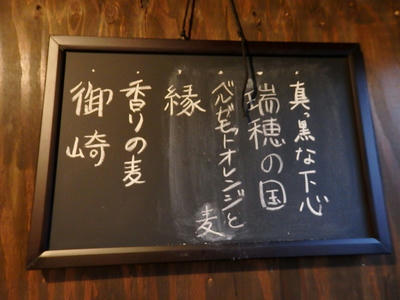 真っ黒な下心
瑞穂の国
ベルガモットオレンジと
麦
縁
香りの麦
御崎